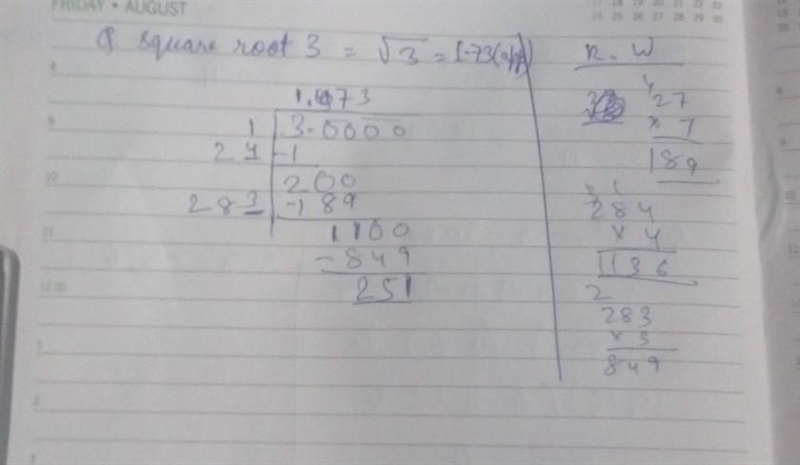 FRIDAY • AUGUST
Q square root 3 = √3 = 1.73(app)
1. 73
1 3.0000
2 -1
200
283 -189
1100
-849
251
R.W
4
27
× 7
189
3 1
284
× 4
1136
2
283
× 3
849